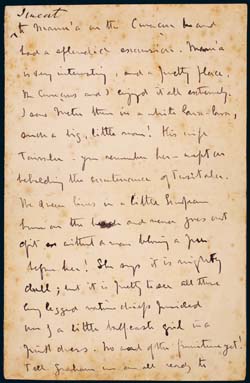 I went
to Manu'a in the Curaçoa and
had a splendid excursion. Manu'a
is very interesting, and a pretty place.
The Curaçoas and I enjoyed it all extremely.
I saw there in a white
such a big, little man! His wife
you remember her kept on
beholding the countenance of Tusitala.
The Queen lives in a little European
house on the and never goes out
of it without a man behind a
before her! She says it is mighty
dull; but it is pretty to see all these
long legged native chiefs presided
over by a little half caste girl in a
print dress. No word of the furniture yet!
Tell Graham we are all ready to